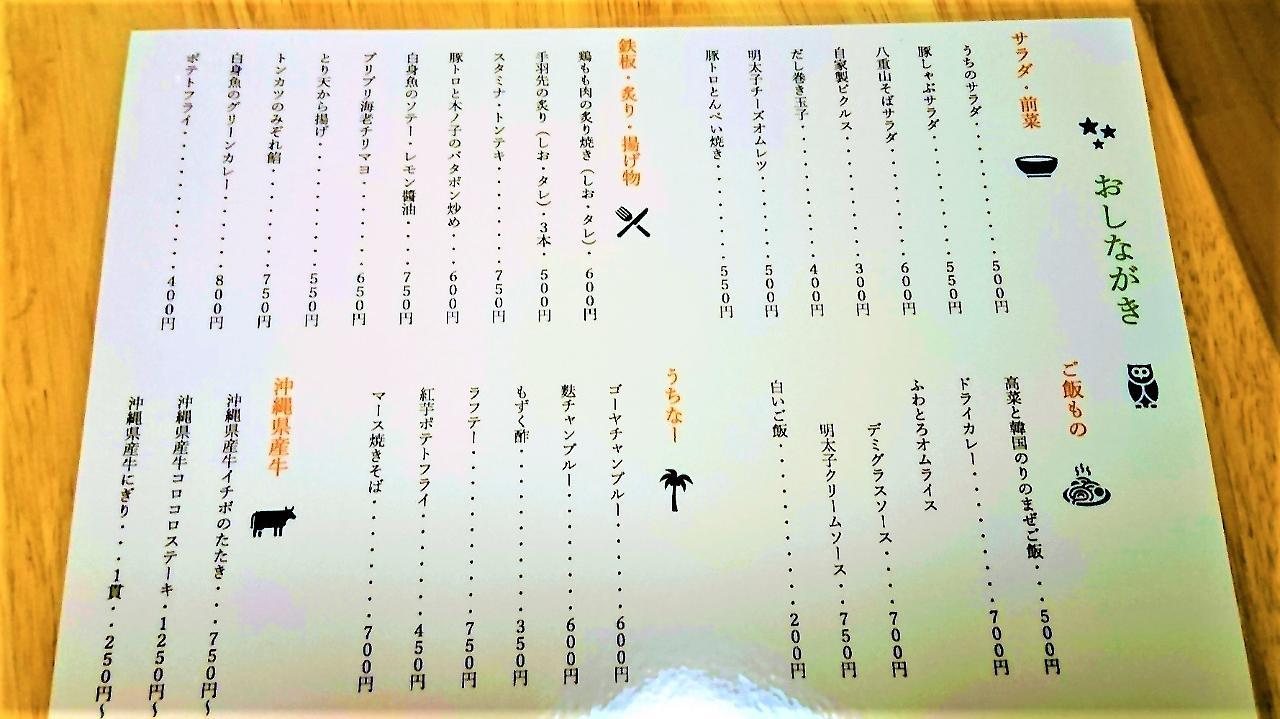 おしながき
サラダ・前菜
うちのサラダ・・・・・・・・・・・・500円
豚しゃぶサラダ・・・・・・・・・・550円
八重山そばサラダ・・・・・・・・・600円
自家製ピクルス・・・・・・・・・・300円
だし巻き玉子・・・・・・・・・・・400円
明太子チーズオムレツ・・・・・・・500円
豚トロとんぺい焼き・・・・・・・・550円
鉄板・炙り・揚げ物
鶏もも肉の炙り焼き(しお・タレ)・600円
手羽先の炙り(しお・タレ)・3本・500円
スタミナ・トンテキ・・・・・・・・750円
豚トロと木ノ子のバタポン炒め・・600円
白身魚のソテー・レモン醤油・・・750円
プリプリ海老チリマヨ・・・・・・650円
とり天から揚げ・・・・・・・・・・550円
トンカツのみぞれ餡・・・・・・・・750円
白身魚のグリーンカレー・・・・・800円
ポテトフライ・・・・・・・・・・・400円
ご飯もの
高菜と韓国のりのまぜご飯・・・500円
ドライカレー・・・・・・・・・・・700円
ふわとろオムライス
デミグラスソース・・・・700円
明太子クリームソース・・750円
白いご飯・・・・・・・・・・・・・200円
うちなー
ゴーヤチャンプルー・・・・・・・600円
麩チャンプルー・・・・・・・・・・600円
もずく酢・・・・・・・・・・・・・350円
ラフテー・・・・・・・・・・・・・750円
紅芋ポテトフライ・・・・・・・・450円
マース焼きそば・・・・・・・・・・700円
沖縄県産牛
沖縄県産牛イチボのたたき・・・750円~
沖縄県産牛コロコロステーキ・1250円~
沖縄県産牛にぎり・・・1貫・・250円~